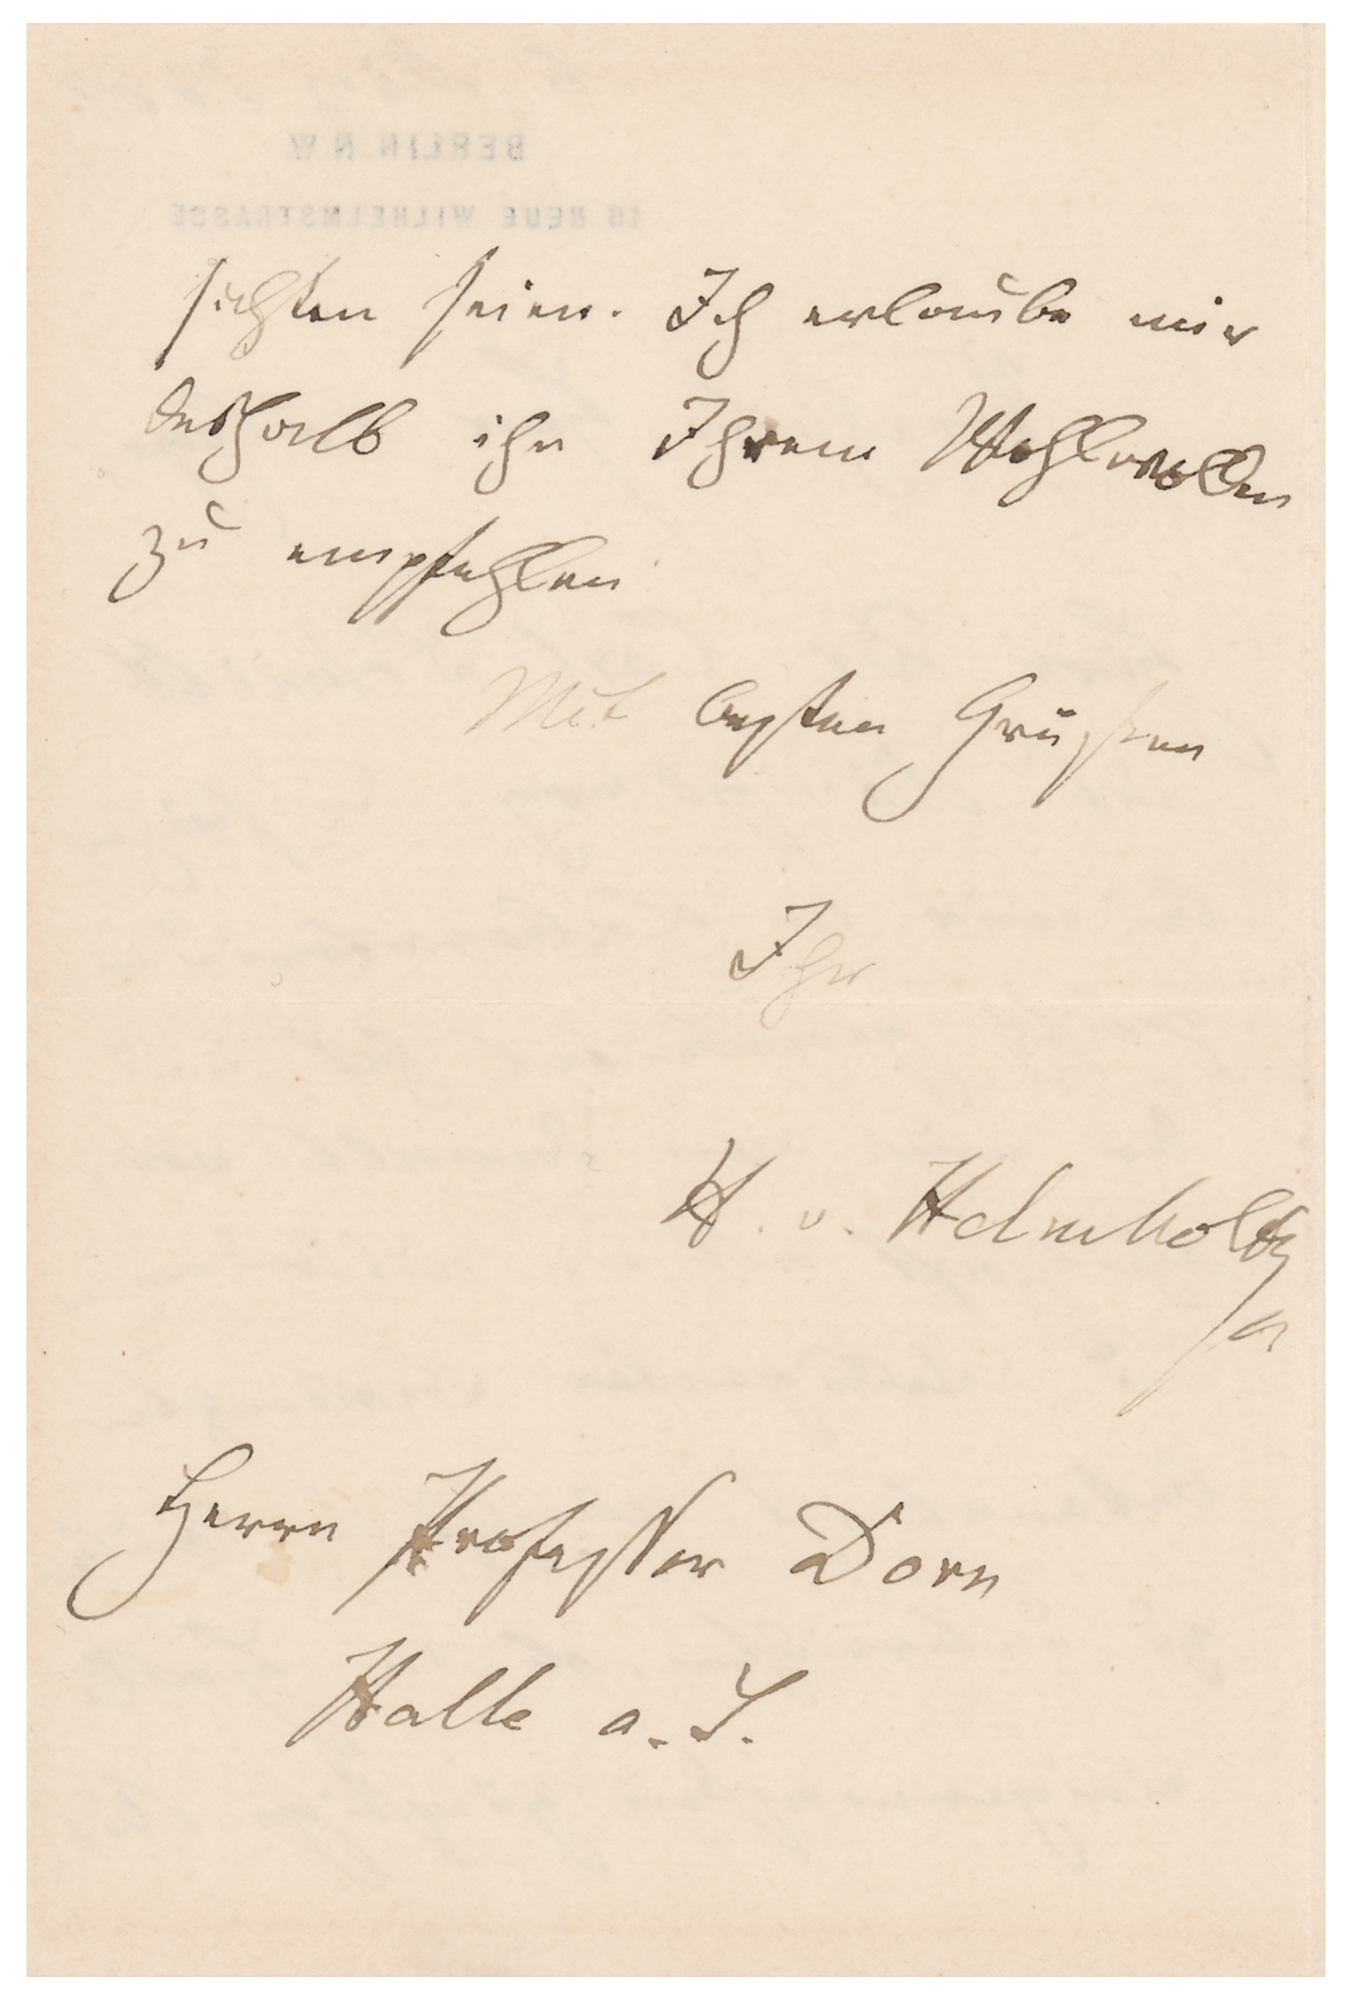 BERLIN N W
16 NEUE WILHELMSTRASSE
sichten seien. Ich erlaube mir
deshalb ihn Ihrem Wohlwollen
zu empfehlen
Mit besten Grüssen
Ihr
H. v. Helmholtz
Herrn Professor Dorn
Halle a. S.